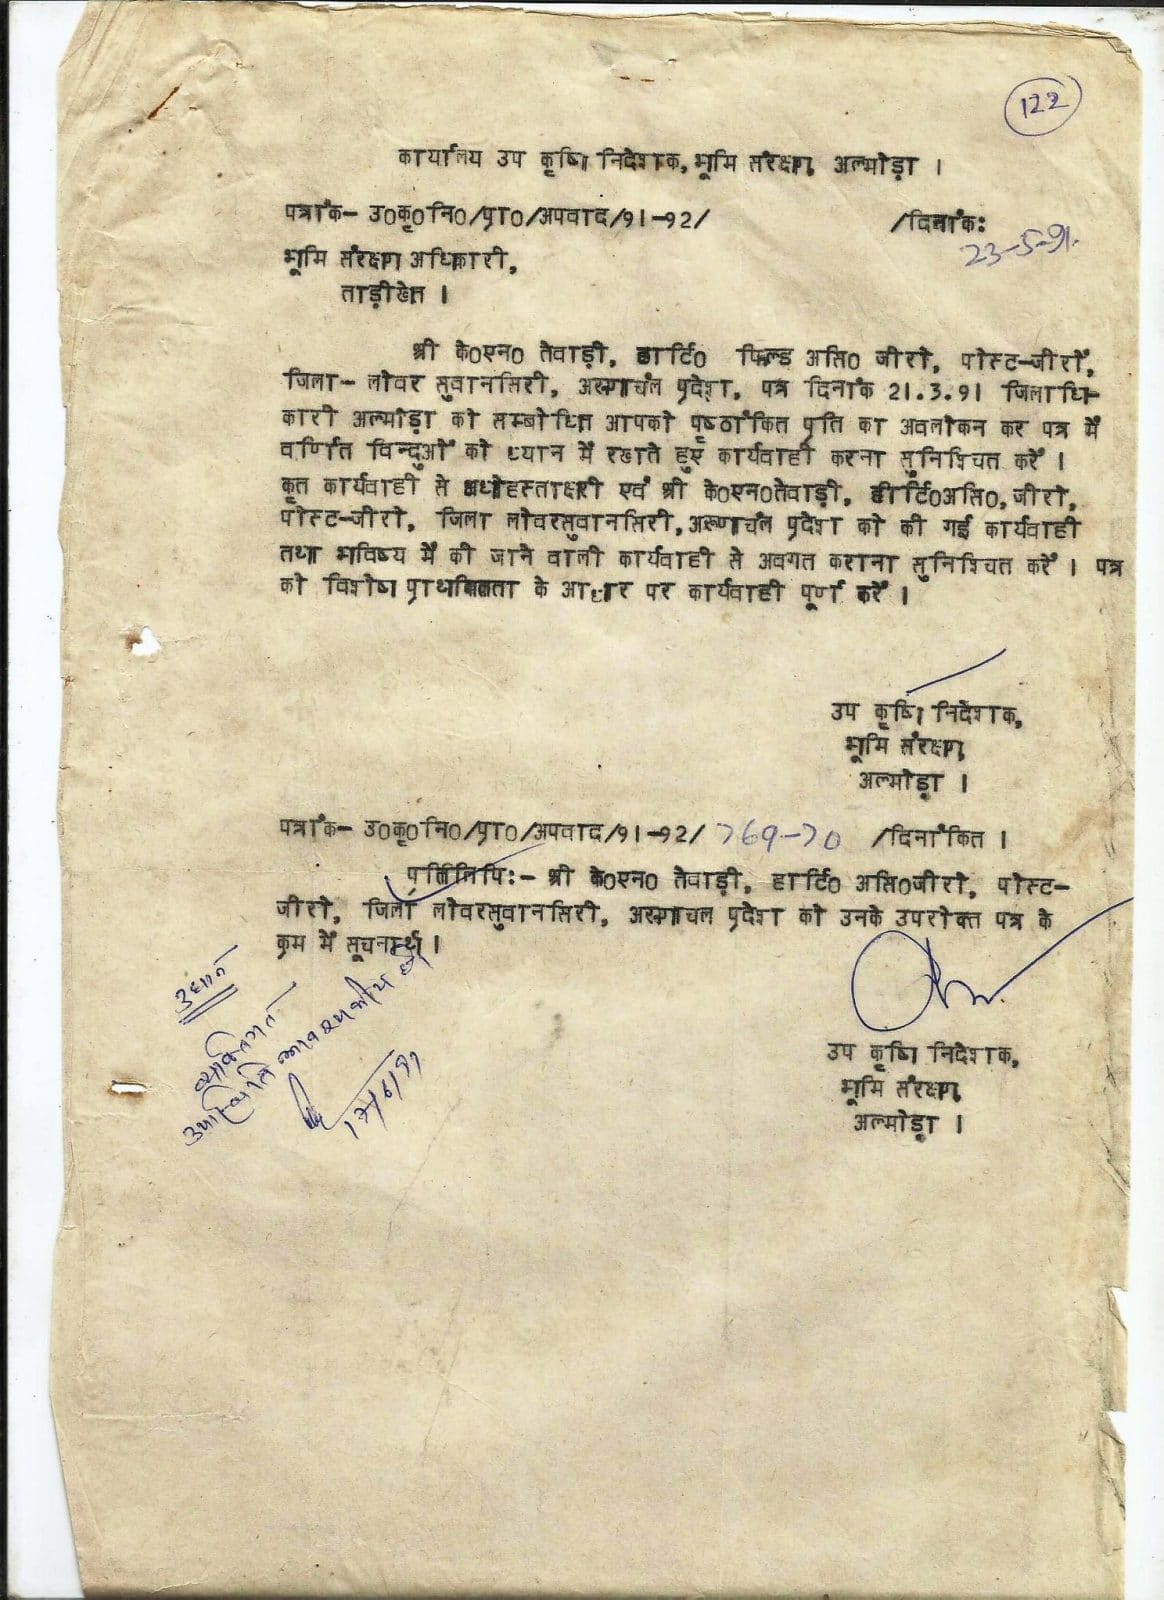 122
कार्यालय उप कृषि निदेशक, भूमि संरक्षण, अल्मोड़ा ।
पत्रांक- उ0कृ0नि0/प्रा0/अपवाद/91-92/ /दिनांक:
23-5-91.
भूमि संरक्षण अधिकारी,
ताड़ीखेत ।
श्री के0एन0 तेवाड़ी, हार्टि0 फिल्ड असि0 जीरो, पोस्ट-जीरो,
जिला- लोवर सुवानसिरी, अरुणाचल प्रदेश, पत्र दिनांक 21.3.91 जिलाधि-
कारी अल्मोड़ा को सम्बोधित आपको पृष्ठांकित प्रति का अवलोकन कर पत्र में
वर्णित विन्दुओं को ध्यान में रखते हुए कार्यवाही करना सुनिश्चित करें ।
कृत कार्यवाही से अधोहस्ताक्षरी एवं श्री के0एन0तेवाड़ी, हार्टि0असि0, जीरो,
पोस्ट-जीरो, जिला लोवरसुवानसिरी, अरूणाचल प्रदेश को की गई कार्यवाही
तथा भविष्य में की जाने वाली कार्यवाही से अवगत कराना सुनिश्चित करें । पत्र
को विशेष प्राथमिकता के आधार पर कार्यवाही पूर्ण करें ।
उप कृषि निदेशक,
भूमि संरक्षण,
अल्मोड़ा ।
पत्रांक- उ0कृ0नि0/प्रा0/अपवाद/91-92/ 769-70 /दिनांकित ।
प्रतिलिपि:- श्री के0एन0 तेवाड़ी, हार्टि0 असि0जीरो, पोस्ट-
जीरो, जिला लोवरसुवानसिरी, अरुणाचल प्रदेश को उनके उपरोक्त पत्र के
क्रम में सूचनार्थ ।
उप कृषि निदेशक,
भूमि संरक्षण,
अल्मोड़ा ।
व्यक्तिगत